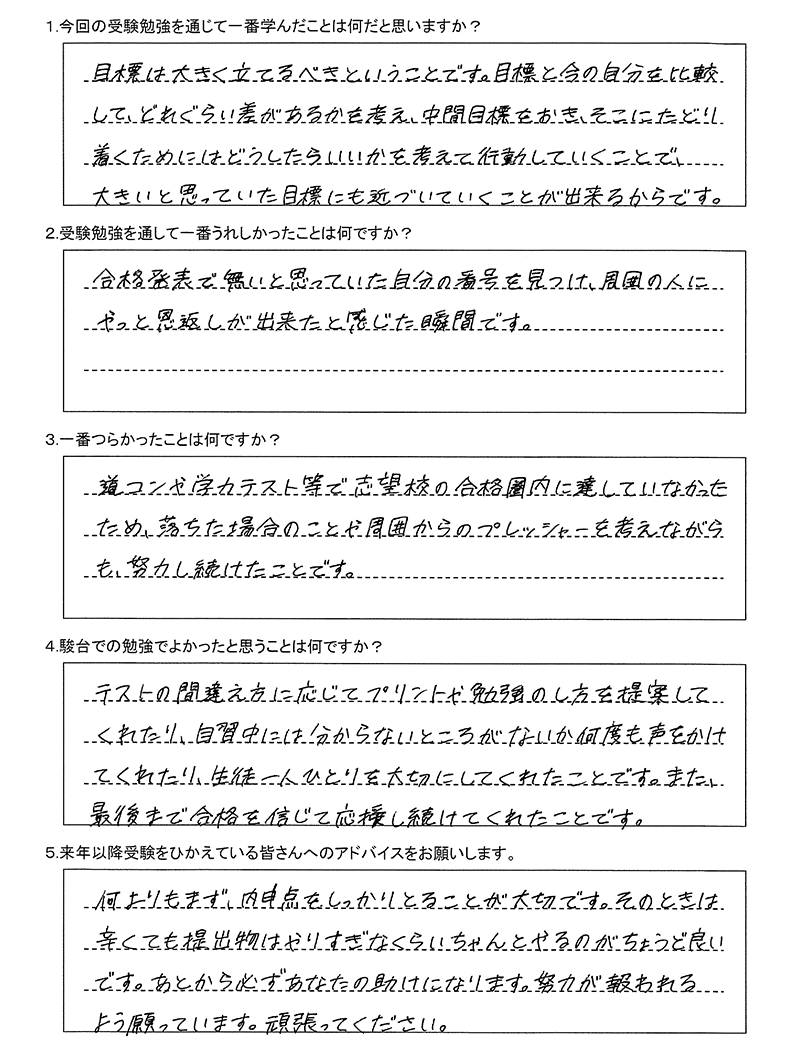 1.今回の受験勉強を通じて一番学んだことは何だと思いますか？
目標は大きく立てるべきということです。目標と今の自分を比較
して、どれぐらい差があるかを考え、中間目標をおき、そこにたどり
着くためにはどうしたらいいかを考えて行動していくことで、
大きいと思っていた目標にも近づいていくことが出来るからです。
2.受験勉強を通して一番うれしかったことは何ですか？
合格発表で無いと思っていた自分の番号を見つけ、周囲の人に
やっと恩返しが出来たと感じた瞬間です。
3.一番つらかったことは何ですか？
道コンや学力テスト等で志望校の合格圏内に達していなかった
ため、落ちた場合のことや周囲からのプレッシャーを考えながら
も、努力し続けたことです。
4.駿台での勉強でよかったと思うことは何ですか？
テストの間違え方に応じてプリントや勉強のし方を提案して
くれたり、自習中には分からないところがないか何度も声をかけ
てくれたり、生徒一人ひとりを大切にしてくれたことです。また、
最後まで合格を信じて応援し続けてくれたことです。
5.来年以降受験をひかえている皆さんへのアドバイスをお願いします。
何よりもまず、内申点をしっかりとることが大切です。そのときは
辛くても提出物はやりすぎなくらいちゃんとやるのがちょうど良い
です。あとから必ずあなたの助けになります。努力が報われる
よう願っています。頑張ってください。